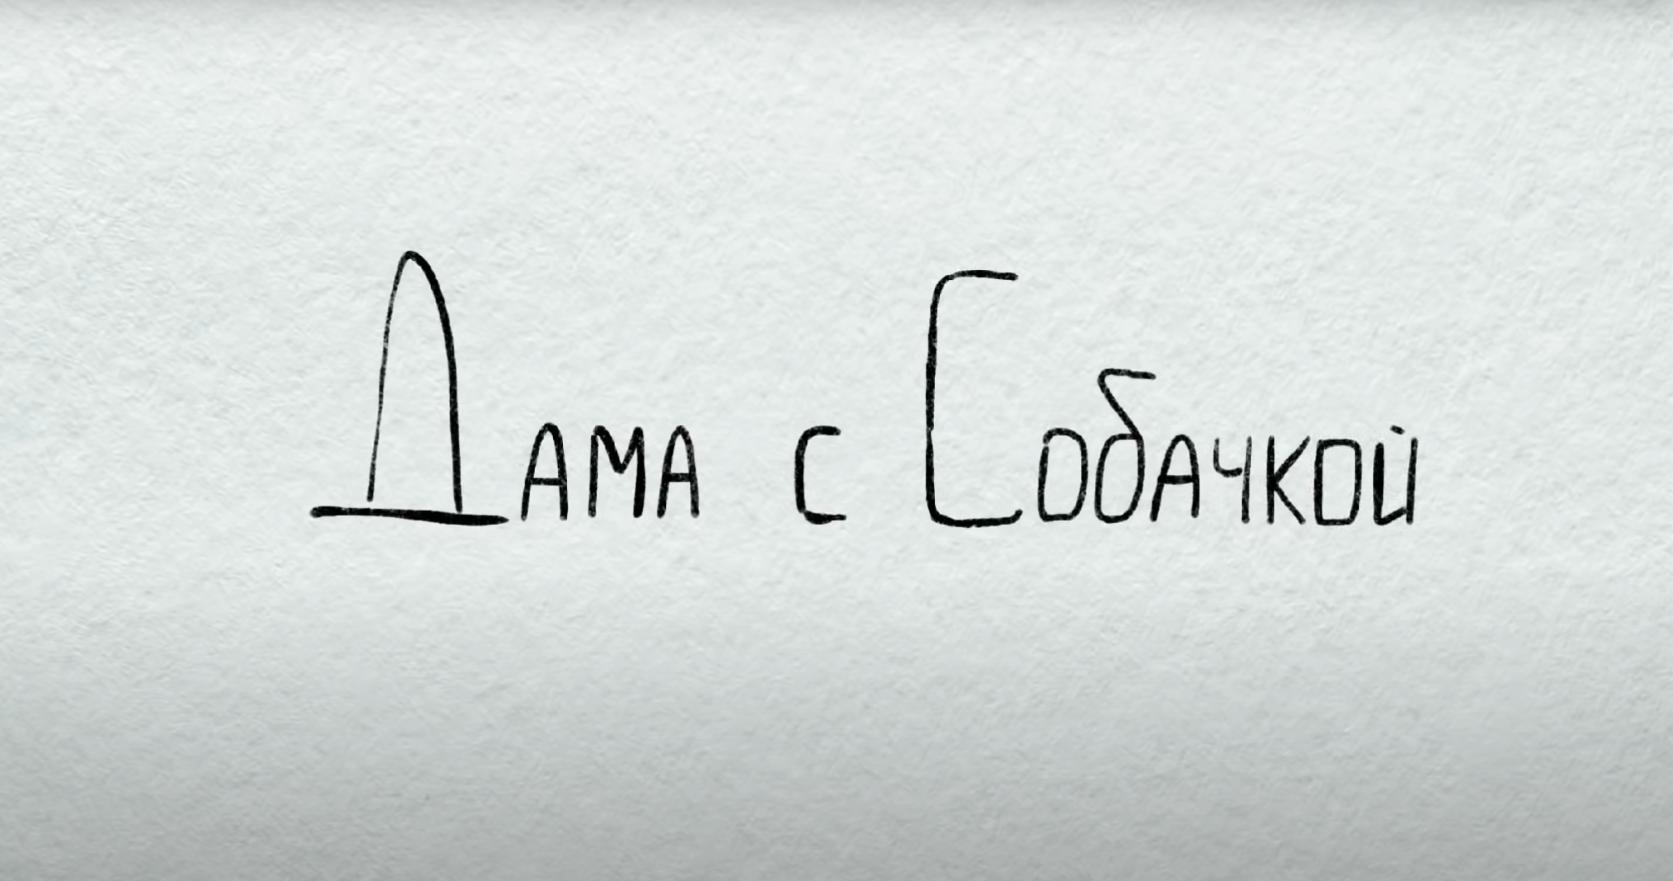 Дама с Собачкой